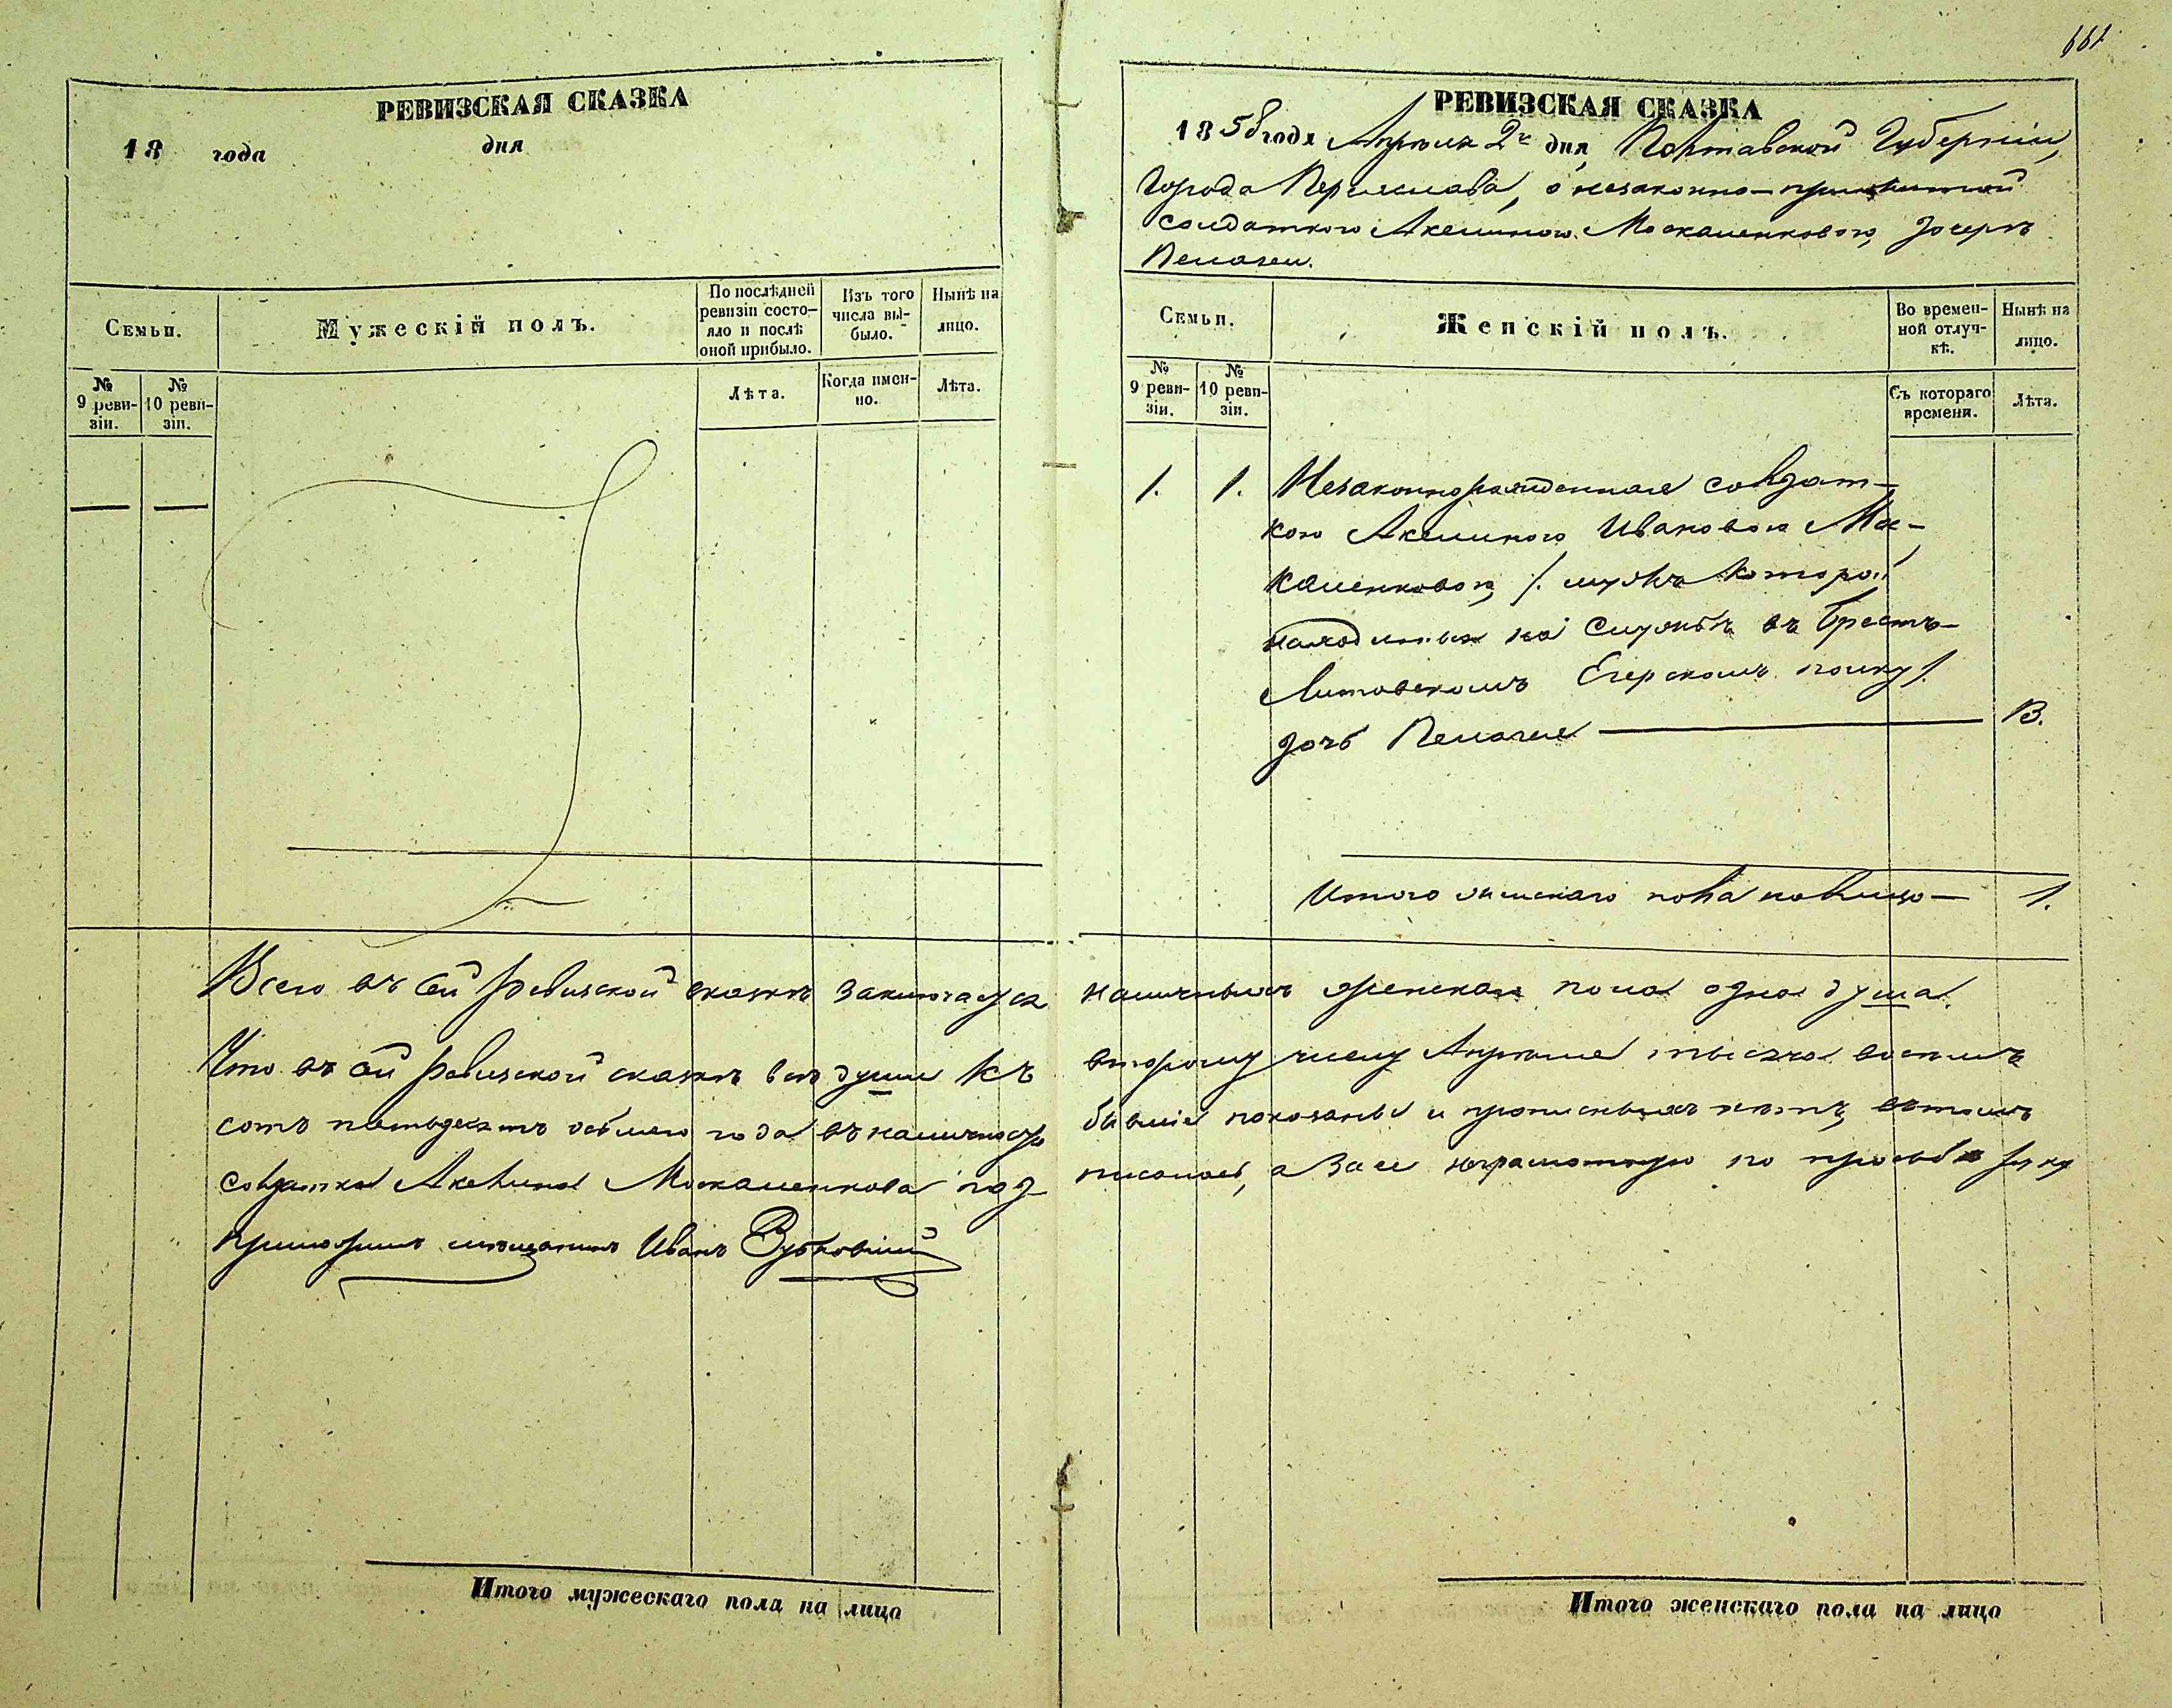 661.
РЕВИЗСКАЯ СКАЗКА
18 года дня
Семьи.
Мужескій полъ.
По послѣдней ревизіи состояло и послѣ оной прибыло.
Изъ того числа выбыло.
Нынѣ на лицо.
№ 9 ревизіи.
№ 10 ревизіи.
Лѣта.
Когда именно.
Лѣта.
РЕВИЗСКАЯ СКАЗКА
1858 года Апрѣля 2го дня Полтавской Губерніи,
Города Переяслава, о незаконно-прижитой
солдаткою Акелиною Москаленковою, дочерѣ
Пелагеи.
Семьи.
Женскій полъ.
Во временной отлучкѣ.
Нынѣ на лицо.
№ 9 ревизіи.
№ 10 ревизіи.
Съ котораго времени.
Лѣта.
1. 1. Незаконнорожденная солдат-
кою Акелиною Ивановою Мос-
каленковою, /. мужъ которой
находится на службѣ въ Брестъ-
Литовскомъ Егерскомъ полку /.
дочь Пелагея — 13.
Итого женскаго пола налицо — 1.
Всего въ сей ревизской сказкѣ заключается наличныхъ женскаго пола одна душа.
Что въ сей ревизской сказкѣ всѣ души къ второму числу Апрѣля тысяча восемь
сотъ пятьдесятъ осьмаго года въ наличности бывшіе показаны и прописныхъ нѣтъ, въ томъ
солдатка Акелина Москаленкова под- писалась, а за ее неграмотную по просьбѣ руку
приложилъ мѣщанинъ Иванъ
Итого мужескаго пола на лицо
Итого женскаго пола на лицо